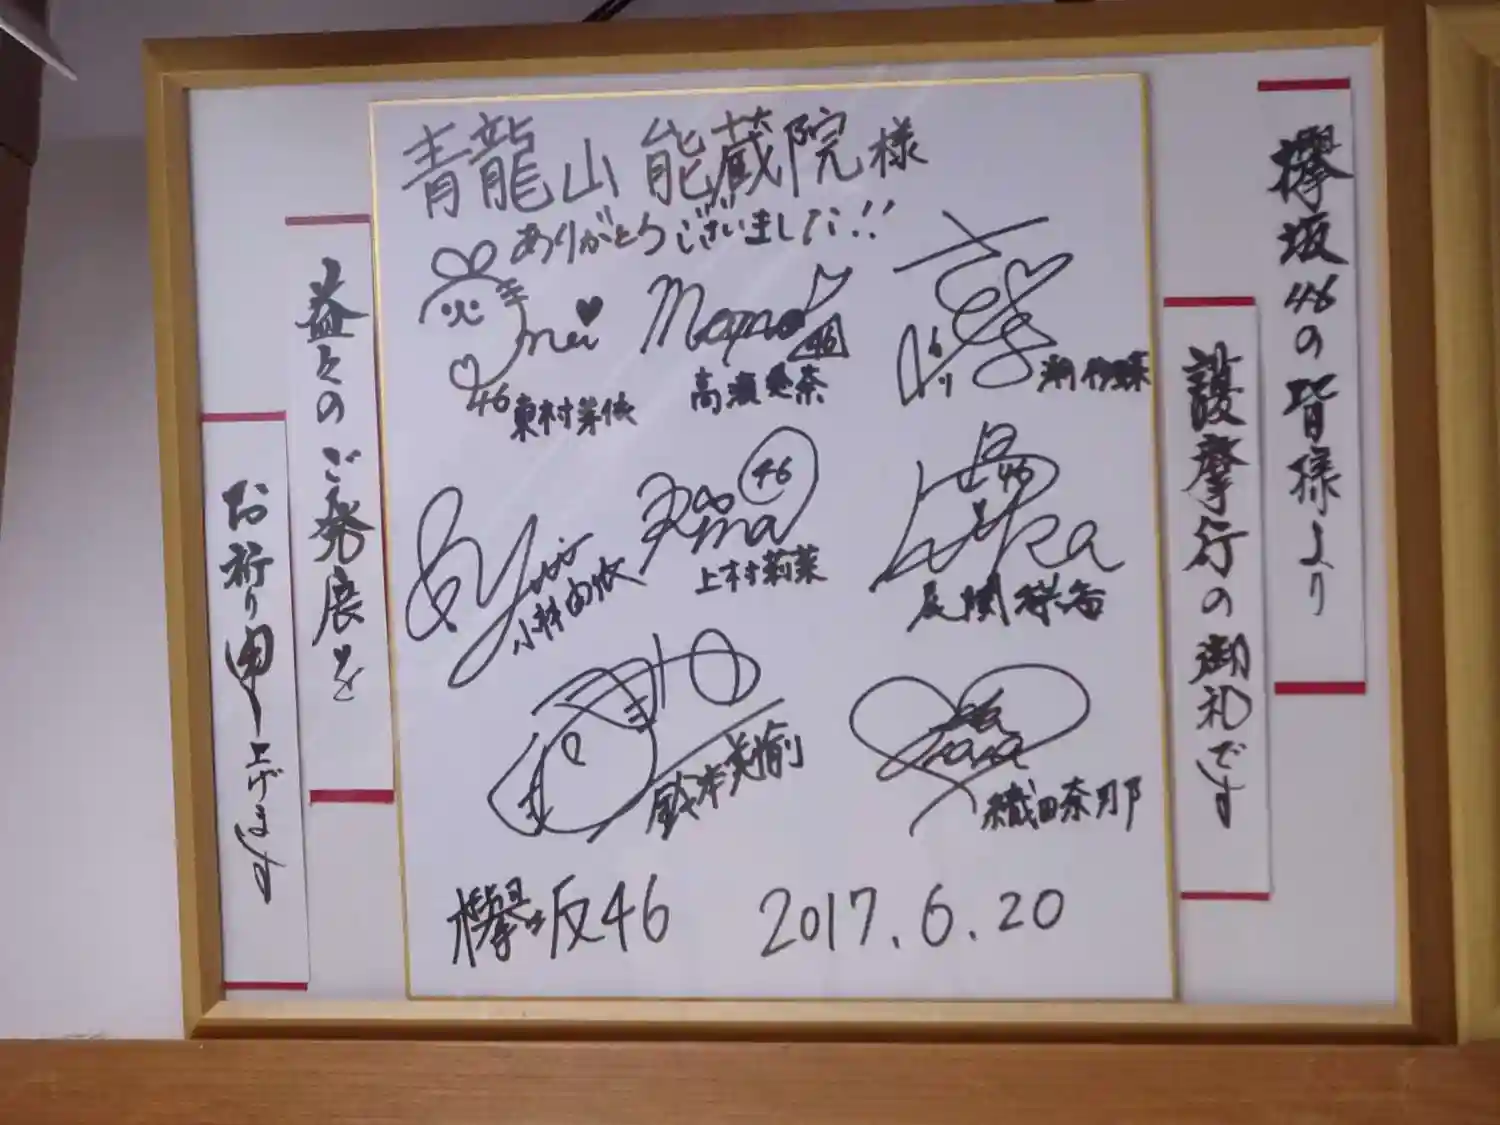 欅坂46の皆様より
護摩行の御礼です
青龍山 能蔵院様
ありがとうございました!!
mei
46
東村芽依
Mana
46
高瀬愛奈
46
潮紗理菜
Yui
小林由依
Rina
46
上村莉菜
46
尾関梨香
鈴本美愉
織田奈那
欅坂46 2017.6.20
益々のご発展を
お祈り申し上げます